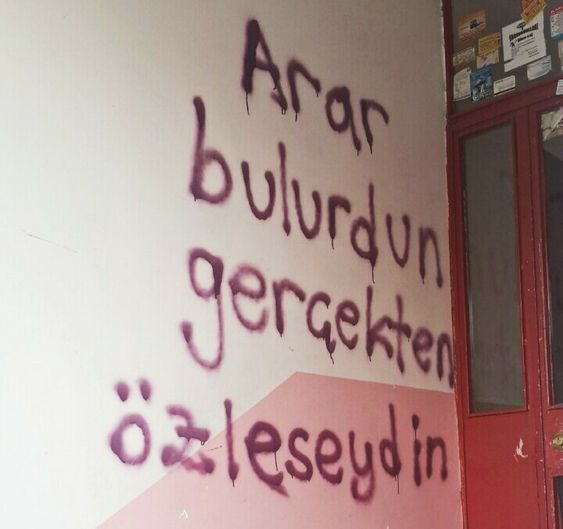 Arar
bulurdun
gerçekten
özleseydin